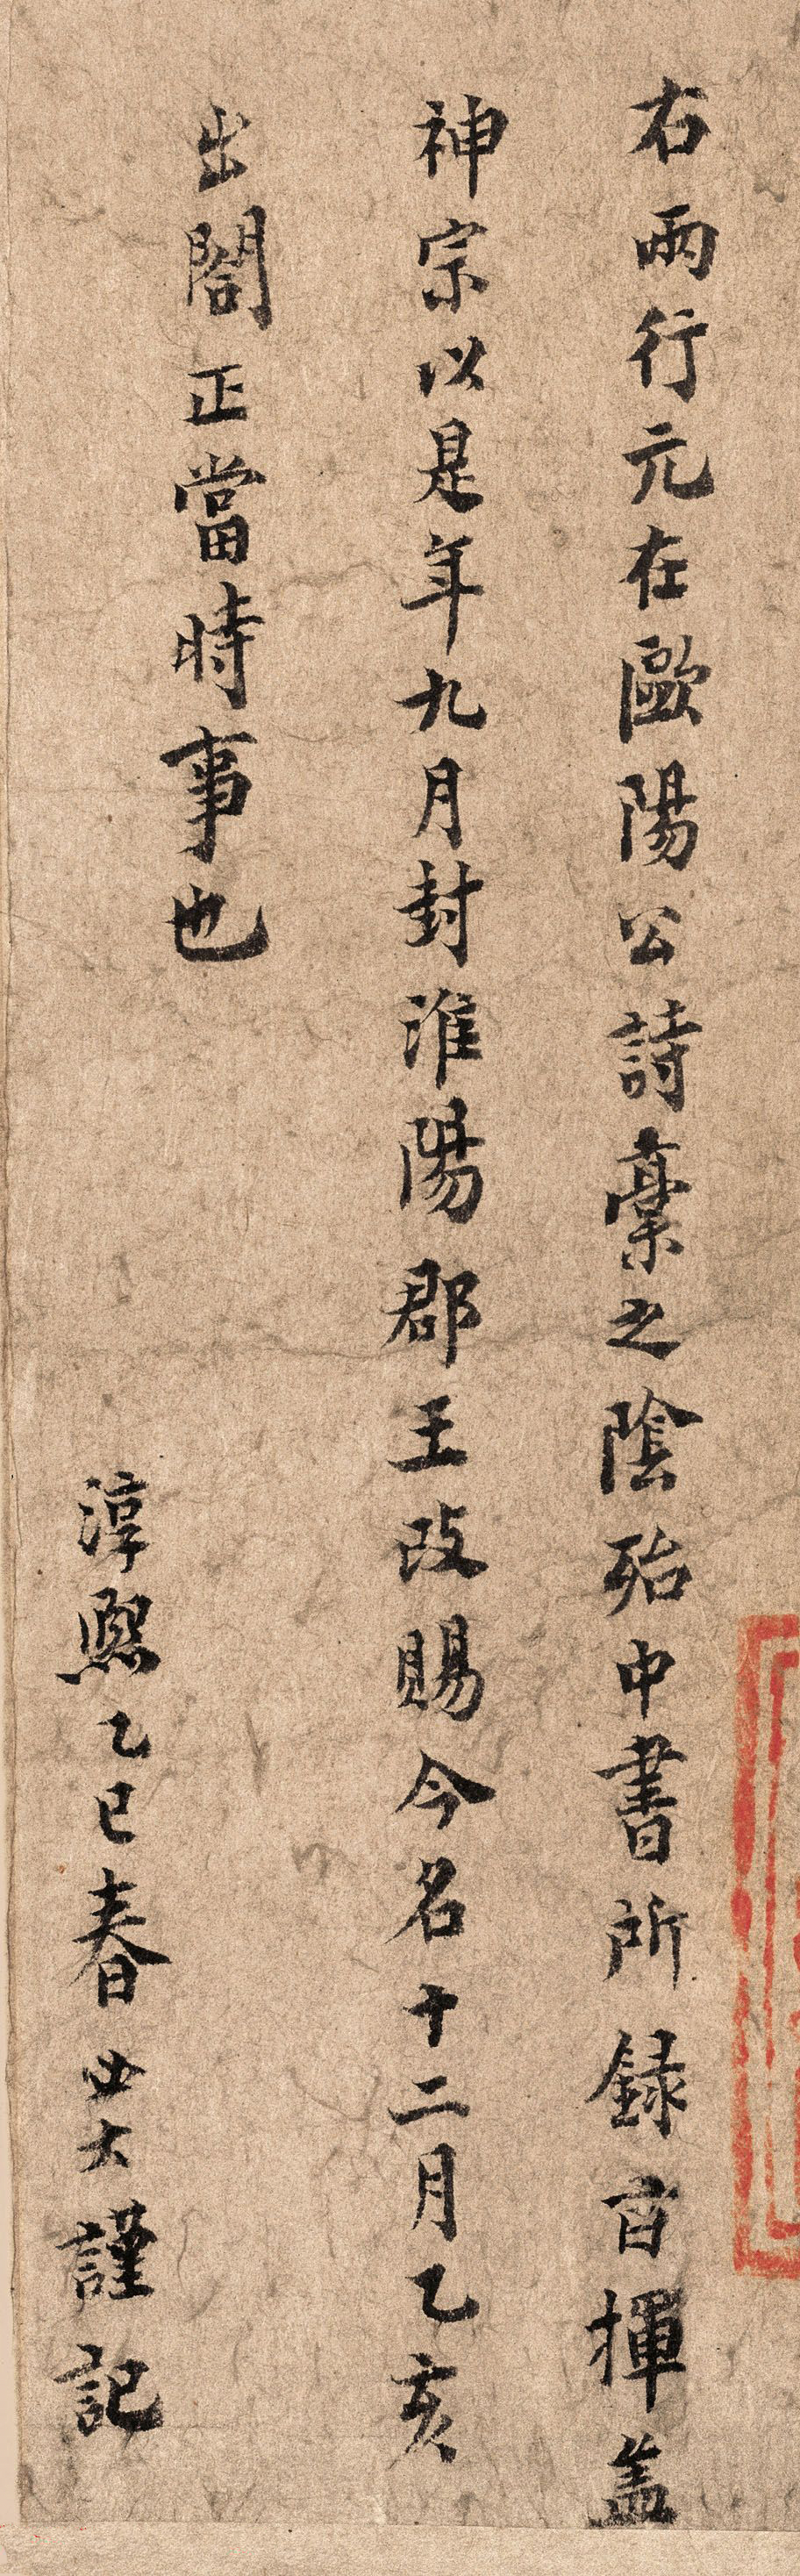 右兩行元在歐陽公詩藁之陰殆中書所録旨揮盖
神宗以是年九月封淮陽郡王改賜今名十二月乙亥
出閤正當時事也
淳熙乙巳春世大謹記